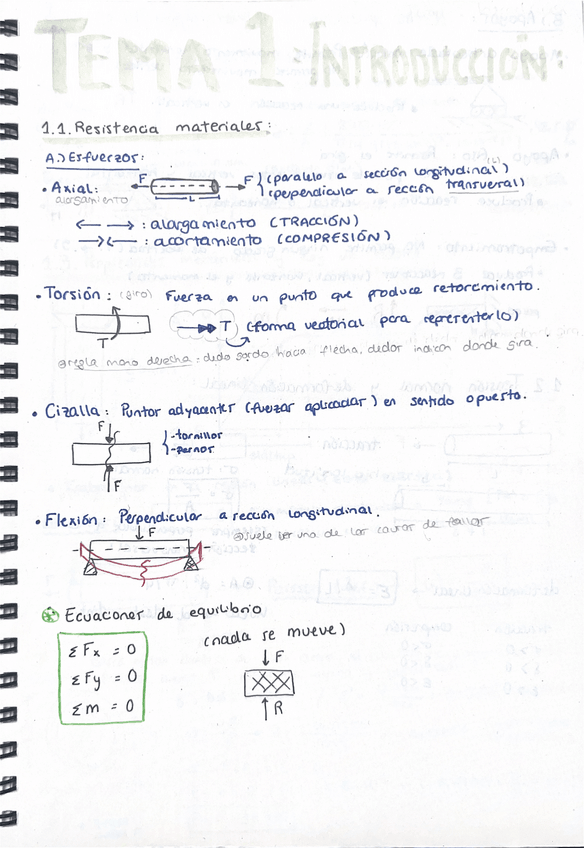 TEMA 1: INTRODUCCIÓN:
1.1. Resistencia materiales:
A.) Esfuerzos:
• Axial:
alargamiento
F
L
F
(paralelo a sección longitudinal)
(perpendicular a sección transversal)
←→ : alargamiento (TRACCIÓN)
→← : acortamiento (COMPRESIÓN)
• Torsión: (giro) Fuerza en un punto que produce retorcimiento.
T
T (forma vectorial para representarlo)
regla mano derecha: dedo gordo hacia flecha, dedos indican donde gira.
• Cizalla: Puntos adyacentes (fuerzas aplicadas) en sentido opuesto.
F
F
-tornillos
-pernos
• Flexión: Perpendicular a sección longitudinal.
F
suele ser una de las causas de fallos
Ecuaciones de equilibrio
ΣFx = 0
ΣFy = 0
Σm = 0
(nada se mueve)
↓F
↑R